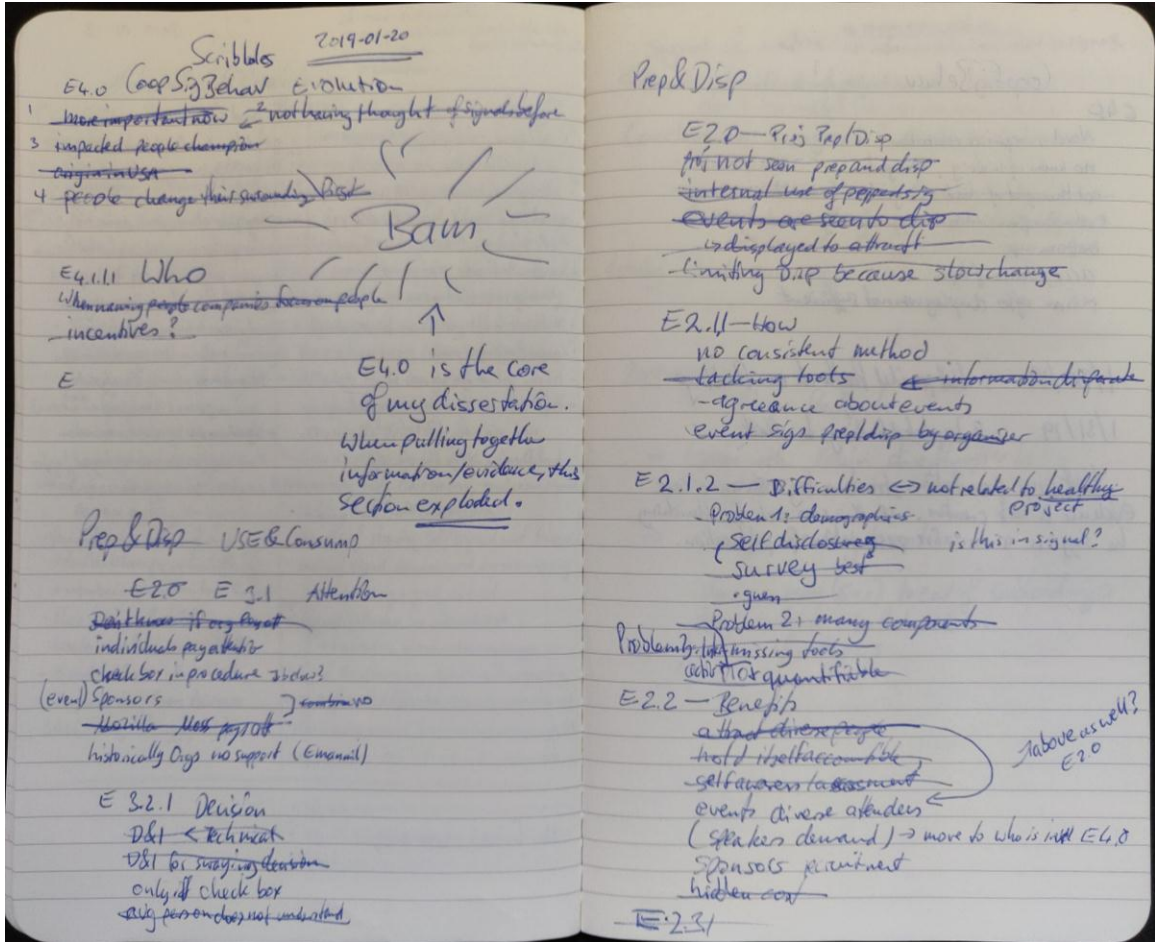 Scribbles 2019-01-20
E4.0 CoopSigBehav Evolution
1 more important now 2 not having thought of signals before
3 impacted people champion
origin in USA
4 people change their surrounding first
Bam
E4.1.1.1 Who
When naming people companies focus on people
incentives?
E
E4.0 is the core
of my dissertation.
When pulling together
information/evidence, this
section exploded.
Prep & Disp USE & Consump
E2.0 E 3.1 Attention
Don't know if org
individuals pay attention
check box in procedure
(event) Sponsors combine no
Mozilla Moss
historically Orgs no support (Emanail)
E 3.2.1 Decision
D&I < Technical
D&I for swaying decision
only if check box
avg person does not understand
Prep & Disp
E2.0 — Proj Prep/Disp
not seen prep and disp
internal use of
events are seen to disp
displayed to attract
limiting Disp because slow change
E2.1.1 — How
no consistent method
- Lacking tools information disparate
- agreeance about events
event sigs prep/disp by organiser
E 2.1.2 — Difficulties ↔ not related to healthy
project
- Problem 1: demographics
Self disclosure is this in signal?
survey best
• guess
Problem 2: many components
Problem 3: missing tools
quantifiable
E2.2 — Benefits
attract diverse people
hold itself accountable
self awareness/assessment
events diverse attenders
(speakers demand) → move to who is in E4.0
sponsors recruitment
hidden cost
above as well?
E2.0
E.2.31